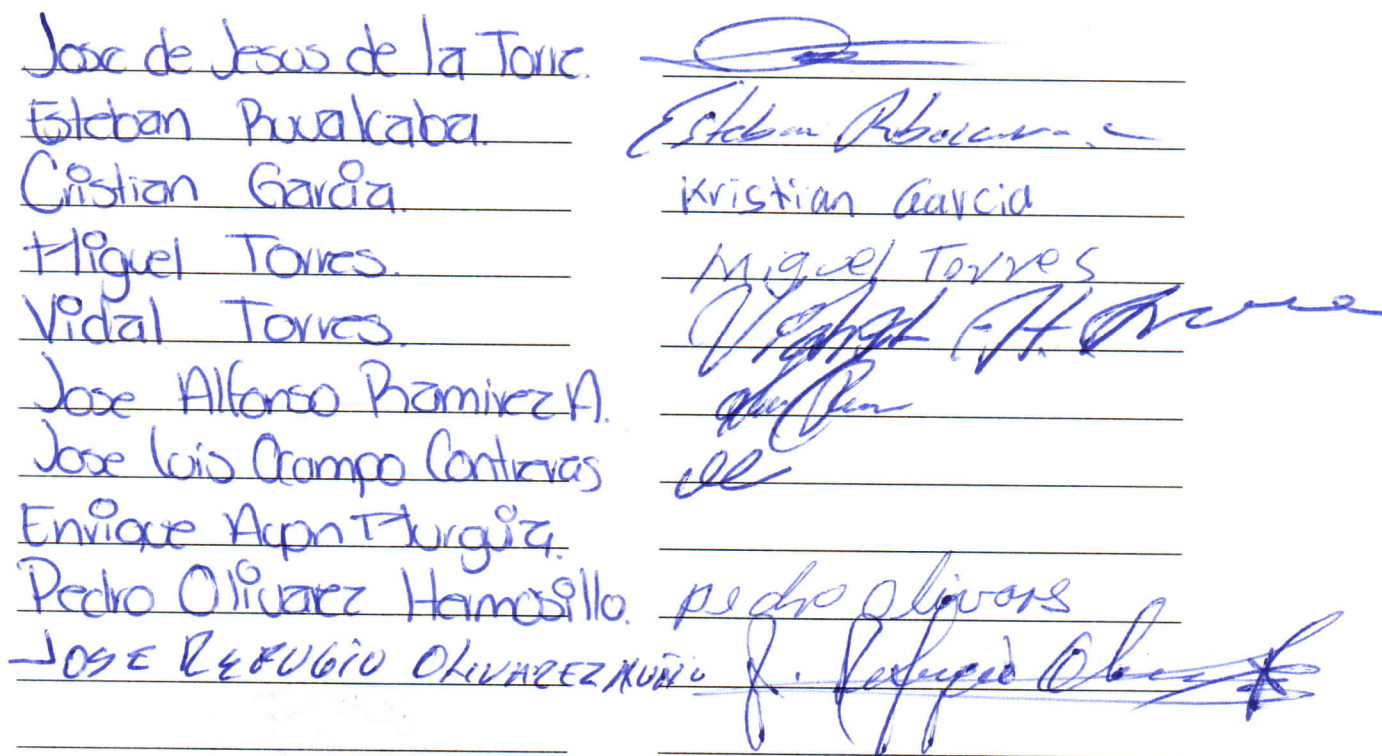 Jose de Jesus de la Torre.
Esteban Ruvalcaba. Esteban
Cristian Garcia. Kristian Garcia
Miguel Torres. Miguel Torres
Vidal Torres.
Jose Alfonso Ramirez A.
Jose Luis Ocampo Contreras
Enrique Murguia.
Pedro Olivarez Hermosillo. pedro olivars
JOSE REFUGIO OLIVAREZ MUÑIO J. Refugio